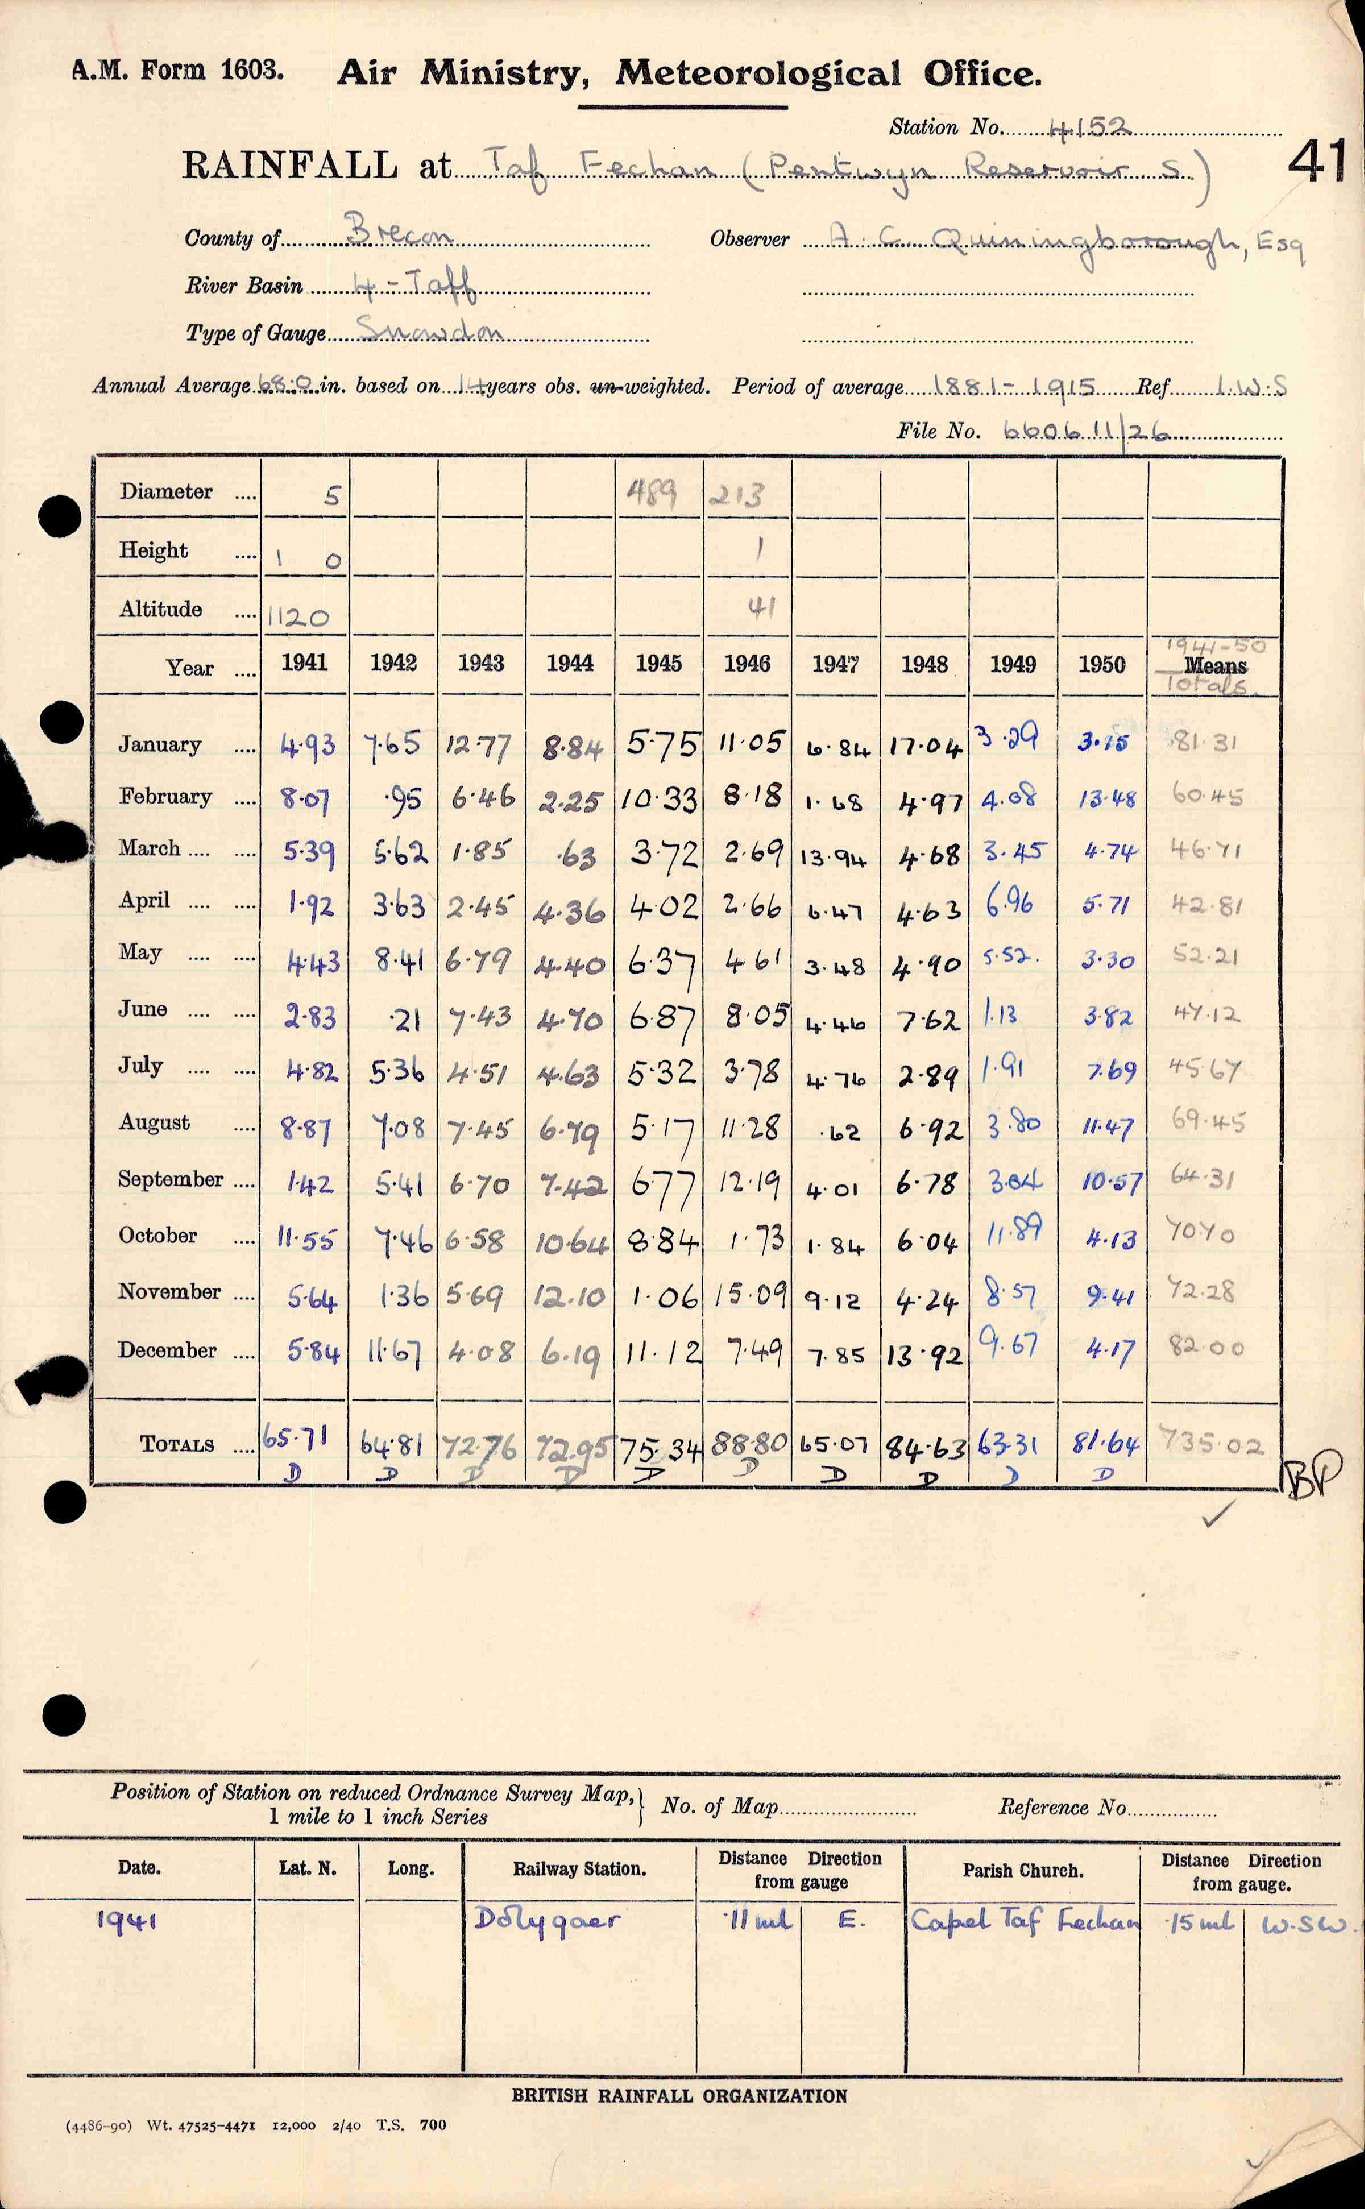 A.M. Form 1603. Air Ministry, Meteorological Office.
Station No. 4152
41
RAINFALL at Taf Fechan (Pentwyn Reservoir S.)
County of Brecon Observer A. C. Quiningborough, Esq
River Basin 4 - Taff
Type of Gauge Snowdon
Annual Average 68.0 in. based on 14 years obs. un-weighted. Period of average 1881-1915 Ref I.W.S
File No. 660611/26
Diameter .... 5 489 213
Height .... 1 0 1
Altitude .... 1120 41
1941-50
Year .... 1941 1942 1943 1944 1945 1946 1947 1948 1949 1950 Means
Totals.
January .... 4.93 7.65 12.77 8.84 5.75 11.05 6.84 17.04 3.29 3.15 81.31
February .... 8.07 .95 6.46 2.25 10.33 8.18 1.68 4.97 4.08 13.48 60.45
March .... .... 5.39 5.62 1.85 .63 3.72 2.69 13.94 4.68 3.45 4.74 46.71
April .... .... 1.92 3.63 2.45 4.36 4.02 2.66 6.47 4.63 6.96 5.71 42.81
May .... .... 4.43 8.41 6.79 4.40 6.37 4 61 3.48 4.90 5.52. 3.30 52.21
June .... .... 2.83 .21 7.43 4.70 6.87 8.05 4.46 7.62 1.13 3.82 47.12
July .... .... 4.82 5.36 4.51 4.63 5.32 3.78 4.76 2.89 1.91 7.69 45.67
August .... 8.87 7.08 7.45 6.79 5.17 11.28 .62 6.92 3.80 11.47 69.45
September .... 1.42 5.41 6.70 7.42 6.77 12.19 4.01 6.78 3.04 10.57 64.31
October .... 11.55 7.46 6.58 10.64 8.84 1.73 1.84 6.04 11.89 4.13 70.70
November .... 5.64 1.36 5.69 12.10 1.06 15.09 9.12 4.24 8.57 9.41 72.28
December .... 5.84 11.67 4.08 6.19 11.12 7.49 7.85 13.92 9.67 4.17 82.00
TOTALS .... 65.71 64.81 72.76 72.95 75.34 88.80 65.07 84.63 63.31 81.64 735.02
D D D D D D D D D D BP
Position of Station on reduced Ordnance Survey Map,
1 mile to 1 inch Series
No. of Map Reference No.
Date. Lat. N. Long. Railway Station. Distance Direction from gauge Parish Church. Distance Direction from gauge.
1941 Dolygaer .11 ml E. Capel Taf Fechan .15 ml W.S.W.
BRITISH RAINFALL ORGANIZATION
(4486-90) Wt. 47525-4471 12,000 2/40 T.S. 700